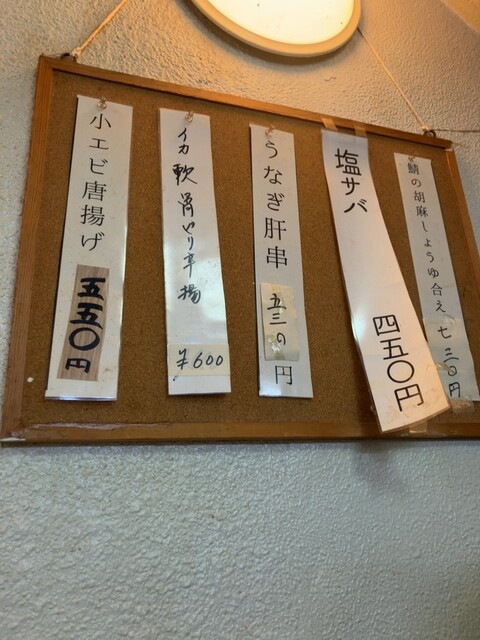 鯖の胡麻しょうゆ合え 七三〇円
塩サバ 四五〇円
うなぎ肝串 五三〇円
イカ軟骨ピリ辛揚 ¥600
小エビ唐揚げ 五五〇円